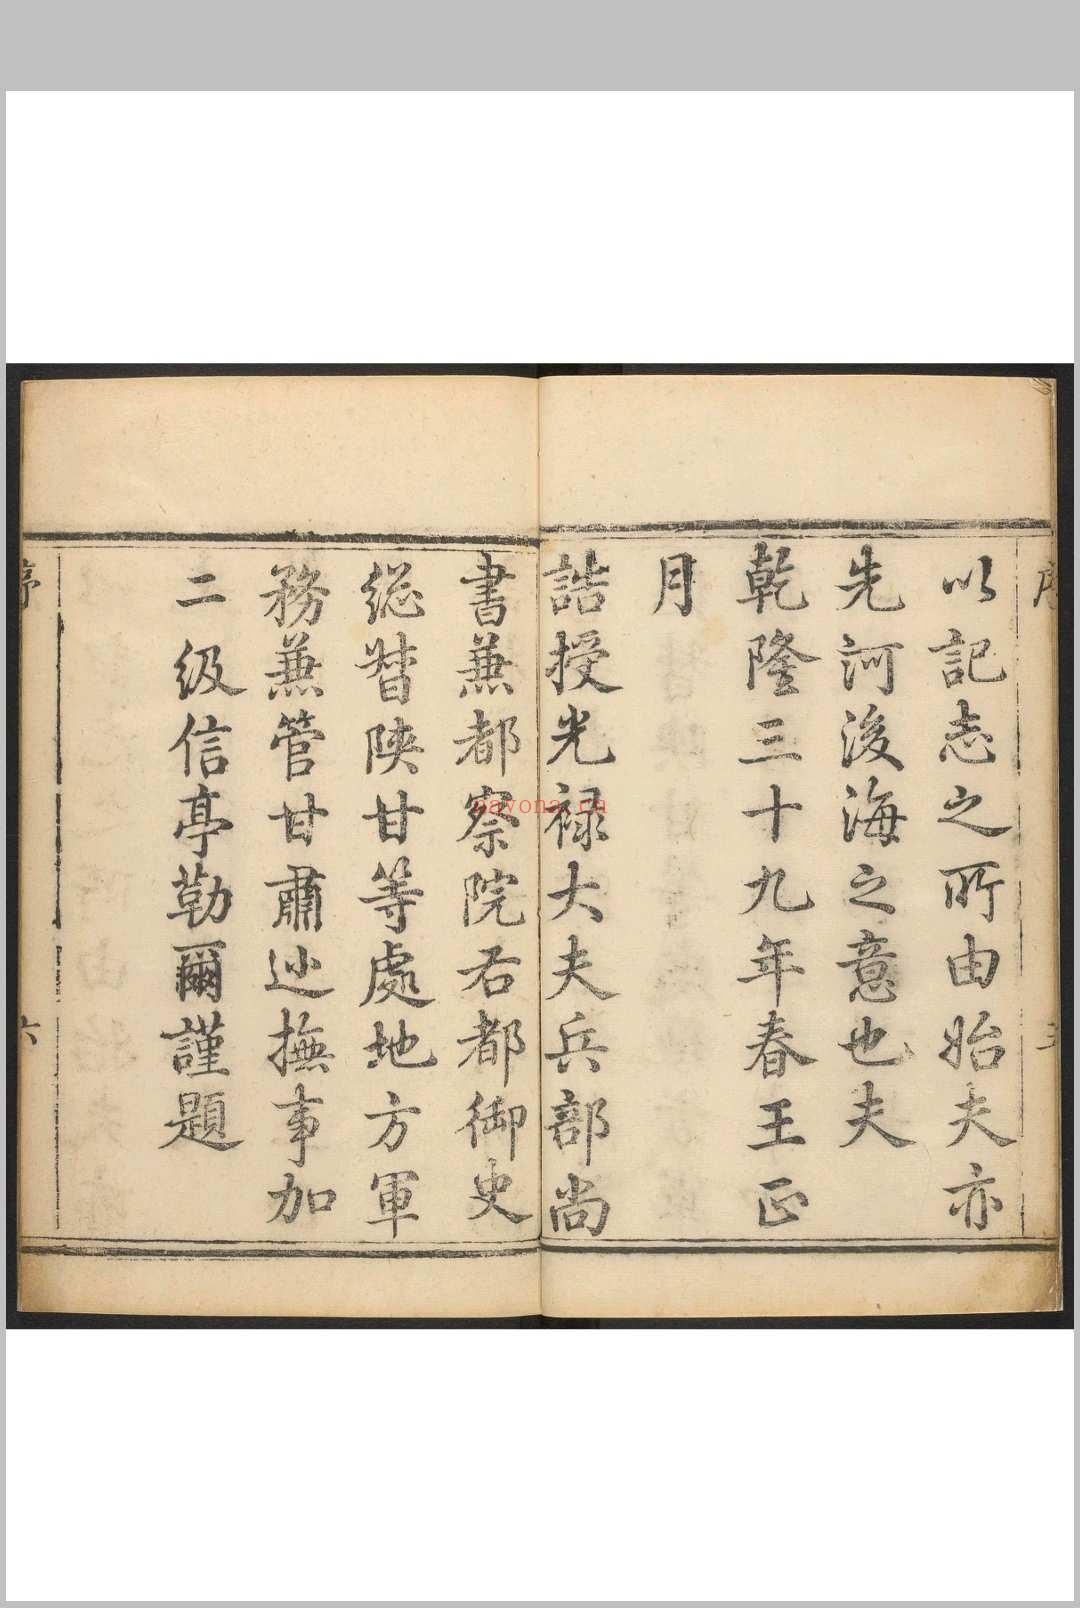 以記志之所由始夫亦
先河後海之意也夫
乾隆三十九年春王正
月
誥授光祿大夫兵部尚
書兼都察院右都御史
総督陝甘等處地方軍
務兼管甘肅巡撫事加
二級信亭勒爾謹題
序
六